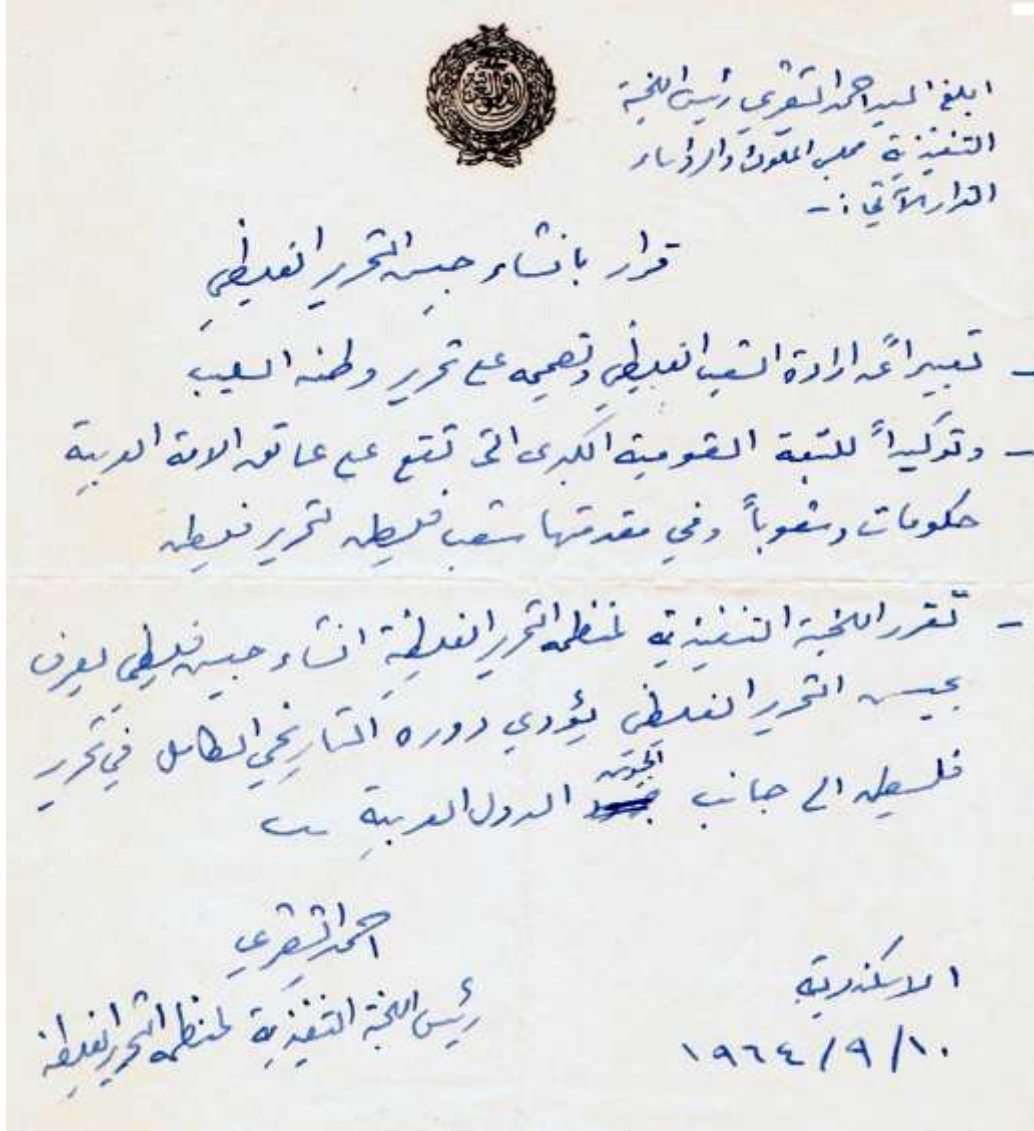 ابلغ السيد احمد الشقيري رئيس اللجنة
التنفيذية مجلس الملوك والرؤساء
القرار الآتي :-
قرار بانشاء جيش التحرير الفلسطيني
- تعبيراً عن ارادة الشعب الفلسطيني وتصميمه على تحرير وطنه السليب
- وتوكيداً للتبعة القومية الكبرى التي تقع على عاتق الامة العربية
حكومات وشعوباً وفي مقدمتها شعب فلسطين لتحرير فلسطين
- تقرر اللجنة التنفيذية لمنظمة التحرير الفلسطينية انشاء جيش فلسطيني يعرف
بجيش التحرير الفلسطيني يؤدي دوره التاريخي الكامل في تحرير
فلسطين الى جانب الجيوش الدول العربية
احمد الشقيري
رئيس اللجنة التنفيذية لمنظمة التحرير الفلسطينية
الاسكندرية
١٩٦٤/٩/١٠